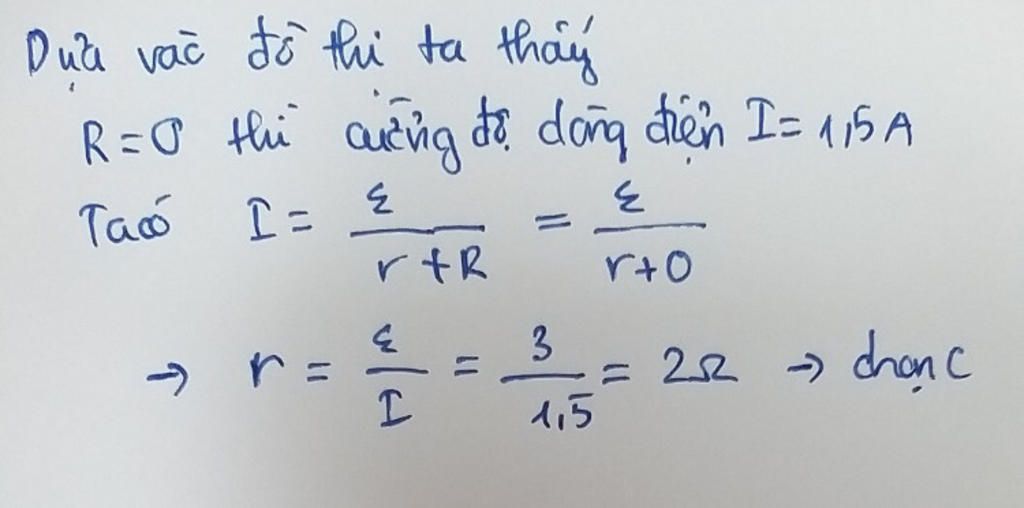 Dựa vào đồ thi ta thấy
R = 0 thì cường độ dòng điện I = 1,5 A
Ta có I = ε / (r + R) = ε / (r + 0)
→ r = ε / I = 3 / 1,5 = 2Ω → chọn C